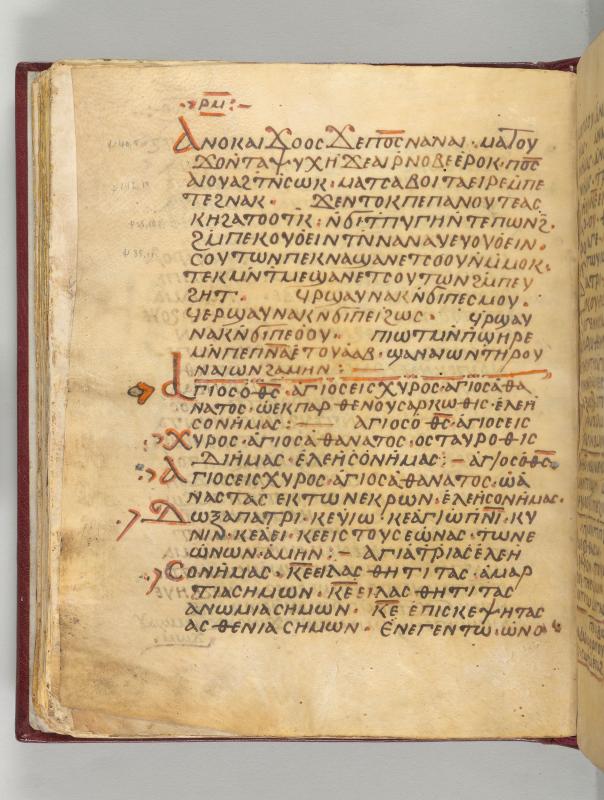 ⲣⲙ
ⲁⲛⲟⲕⲁⲓϫⲟⲟⲥϫⲉⲡⲟ̅ⲥ̅ⲛⲁⲛⲁⲓ · ⲙⲁⲧⲟⲩ
ϫⲟⲛⲧⲁⲯⲩⲭⲏϫⲉⲁⲓⲣⲛⲟⲃⲉⲉⲣⲟⲕ · ⲡⲟ̅ⲥ̅
ⲁⲓⲟⲩⲁϩⲧⲛ̀ⲥⲱⲕ · ⲙⲁⲧⲥⲁⲃⲟⲓⲧⲁⲉⲓⲣⲉⲙ̀ⲡⲉ
ⲧⲉϩⲛⲁⲕ · ϫⲉⲛⲧⲟⲕⲡⲉⲡⲁⲛⲟⲩⲧⲉⲁⲥ
ⲕⲏϩⲁⲧⲟⲟⲧⲕ : ⲛ̀ϭⲓⲧⲡⲩⲅⲏⲛ̀ⲧⲉⲡⲱⲛϩ ·
ϩⲙ̀ⲡⲉⲕⲟⲩⲟ̀ⲉⲓⲛⲧⲛ̀ⲛⲁⲛⲁⲩⲉⲩⲟⲩⲟ̀ⲉⲓⲛ ·
ⲥⲟⲩⲧⲱⲛⲡⲉⲕⲛⲁϣⲁⲛⲉⲧⲥⲟⲟⲩⲛ̀ⲙ̀ⲙⲟⲕ ·
ⲧⲉⲕⲙⲛ̀ⲧⲙⲉϣⲁⲛⲉⲧⲥⲟⲩⲧⲱⲛϩⲙ̀ⲡⲉⲩ
ϩⲏⲧ · ϥⲣϣⲁⲩⲛⲁⲕⲛ̀ϭⲓⲡⲉⲥⲙⲟⲩ ·
ϥⲉⲣϣⲁⲩⲛⲁⲕⲛ̀ϭⲓⲡⲉⲓϩⲱⲥ · ϥ̀ⲣϣⲁⲩ
ⲛⲁⲕⲛ̀ϭⲓⲡⲉⲟ̀ⲟⲩ · ⲡⲓⲱⲧⲙⲛ̀ⲡϣⲏⲣⲉ
ⲙⲛ̀ⲡⲉⲡ̅ⲛ̅ⲁ̅ⲉ̀ⲧⲟⲩⲁⲁⲃ · ϣⲁⲛⲁⲓⲱⲛⲧⲏⲣⲟⲩ
ⲛ̀ⲛⲁⲓⲱⲛϩⲁⲙⲏⲛ :
ⲁⲅⲓⲟⲥⲟ̀ⲑ̅ⲥ̅ · ⲁⲅⲓⲟⲥⲉⲓⲥⲭⲩⲣⲟⲥ · ⲁⲅⲓⲟⲥⲁ̀ⲑⲁ
ⲛⲁⲧⲟⲥ · ⲱ̀ⲉⲕⲡⲁⲣⲑⲉⲛⲟⲩⲥⲁⲣⲕⲱⲑⲓⲥ · ⲉⲗⲉⲏ̀
ⲥⲟⲛⲏ̀ⲙⲁⲥ : — ⲁⲅⲓⲟⲥⲟ̀ ⲑ̅ⲥ̅ · ⲁⲅⲓⲟⲥⲉⲓⲥ
ⲭⲩⲣⲟⲥ · ⲁ̀ⲅⲓⲟⲥⲁ̀ⲑⲁⲛⲁⲧⲟⲥ · ⲟⲥⲧⲁⲩⲣⲟⲑⲓⲥ
ⲇⲓⲏ̀ⲙⲁⲥ · ⲉ̀ⲗⲉⲏ̀ⲥⲟⲛⲏ̀ⲙⲁⲥ : — ⲁⲅⲓⲟⲥⲟ̀ⲑ̅ⲥ̅
ⲁⲅⲓⲟⲥⲉⲓⲥⲭⲩⲣⲟⲥ · ⲁ̀ⲅⲓⲟⲥⲁ̀ⲑⲁⲛⲁⲧⲟⲥ · ⲱ̀ⲁ̀
ⲛⲁⲥⲧⲁⲥ ⲉⲕⲧⲱⲛⲉⲕⲣⲱⲛ · ⲉⲗⲉⲏⲥⲟⲛⲏ̀ⲙⲁⲥ ·
ⲇⲱⲝⲁⲡⲁⲧⲣⲓ · ⲕⲉⲩ̀ⲓⲱ · ⲕⲉⲁ̀ⲅⲓⲱ̀ⲡ̅ⲛ̅ⲓ̅ · ⲕⲩ
ⲛⲓⲛ · ⲕⲉⲁ̀ⲉⲓ · ⲕⲉⲉⲓⲥⲧⲟⲩⲥⲉⲱ̀ⲛⲁⲥ · ⲧⲱⲛⲉ
ⲱ̀ⲛⲱⲛ · ⲁ̀ⲙⲏⲛ : — ⲁⲅⲓⲁ̀ⲧⲣⲓⲁⲥⲉ̀ⲗⲉⲏ̀
ⲥⲟⲛⲏ̀ⲙⲁⲥ · ⲕⲉⲉⲓⲗⲁⲥⲑⲏⲧⲓⲧⲁⲥ · ⲁ̀ⲙⲁⲣ
ⲧⲓⲁⲥⲏⲙⲱⲛ · ⲕ̅ⲉ̅ⲉⲓⲗⲁⲥⲑⲏⲧⲓⲧⲁⲥ
ⲁⲛⲱⲙⲓⲁⲥⲏⲙⲱⲛ · ⲕ̅ⲉ̅ ⲉⲡⲓⲥⲕⲉⲯⲏⲧⲁⲥ
ⲁⲥⲑⲉⲛⲓⲁⲥⲏⲙⲱⲛ · ⲉⲛⲉⲅⲉⲛⲧⲱ · ⲱ̀ⲛⲟ